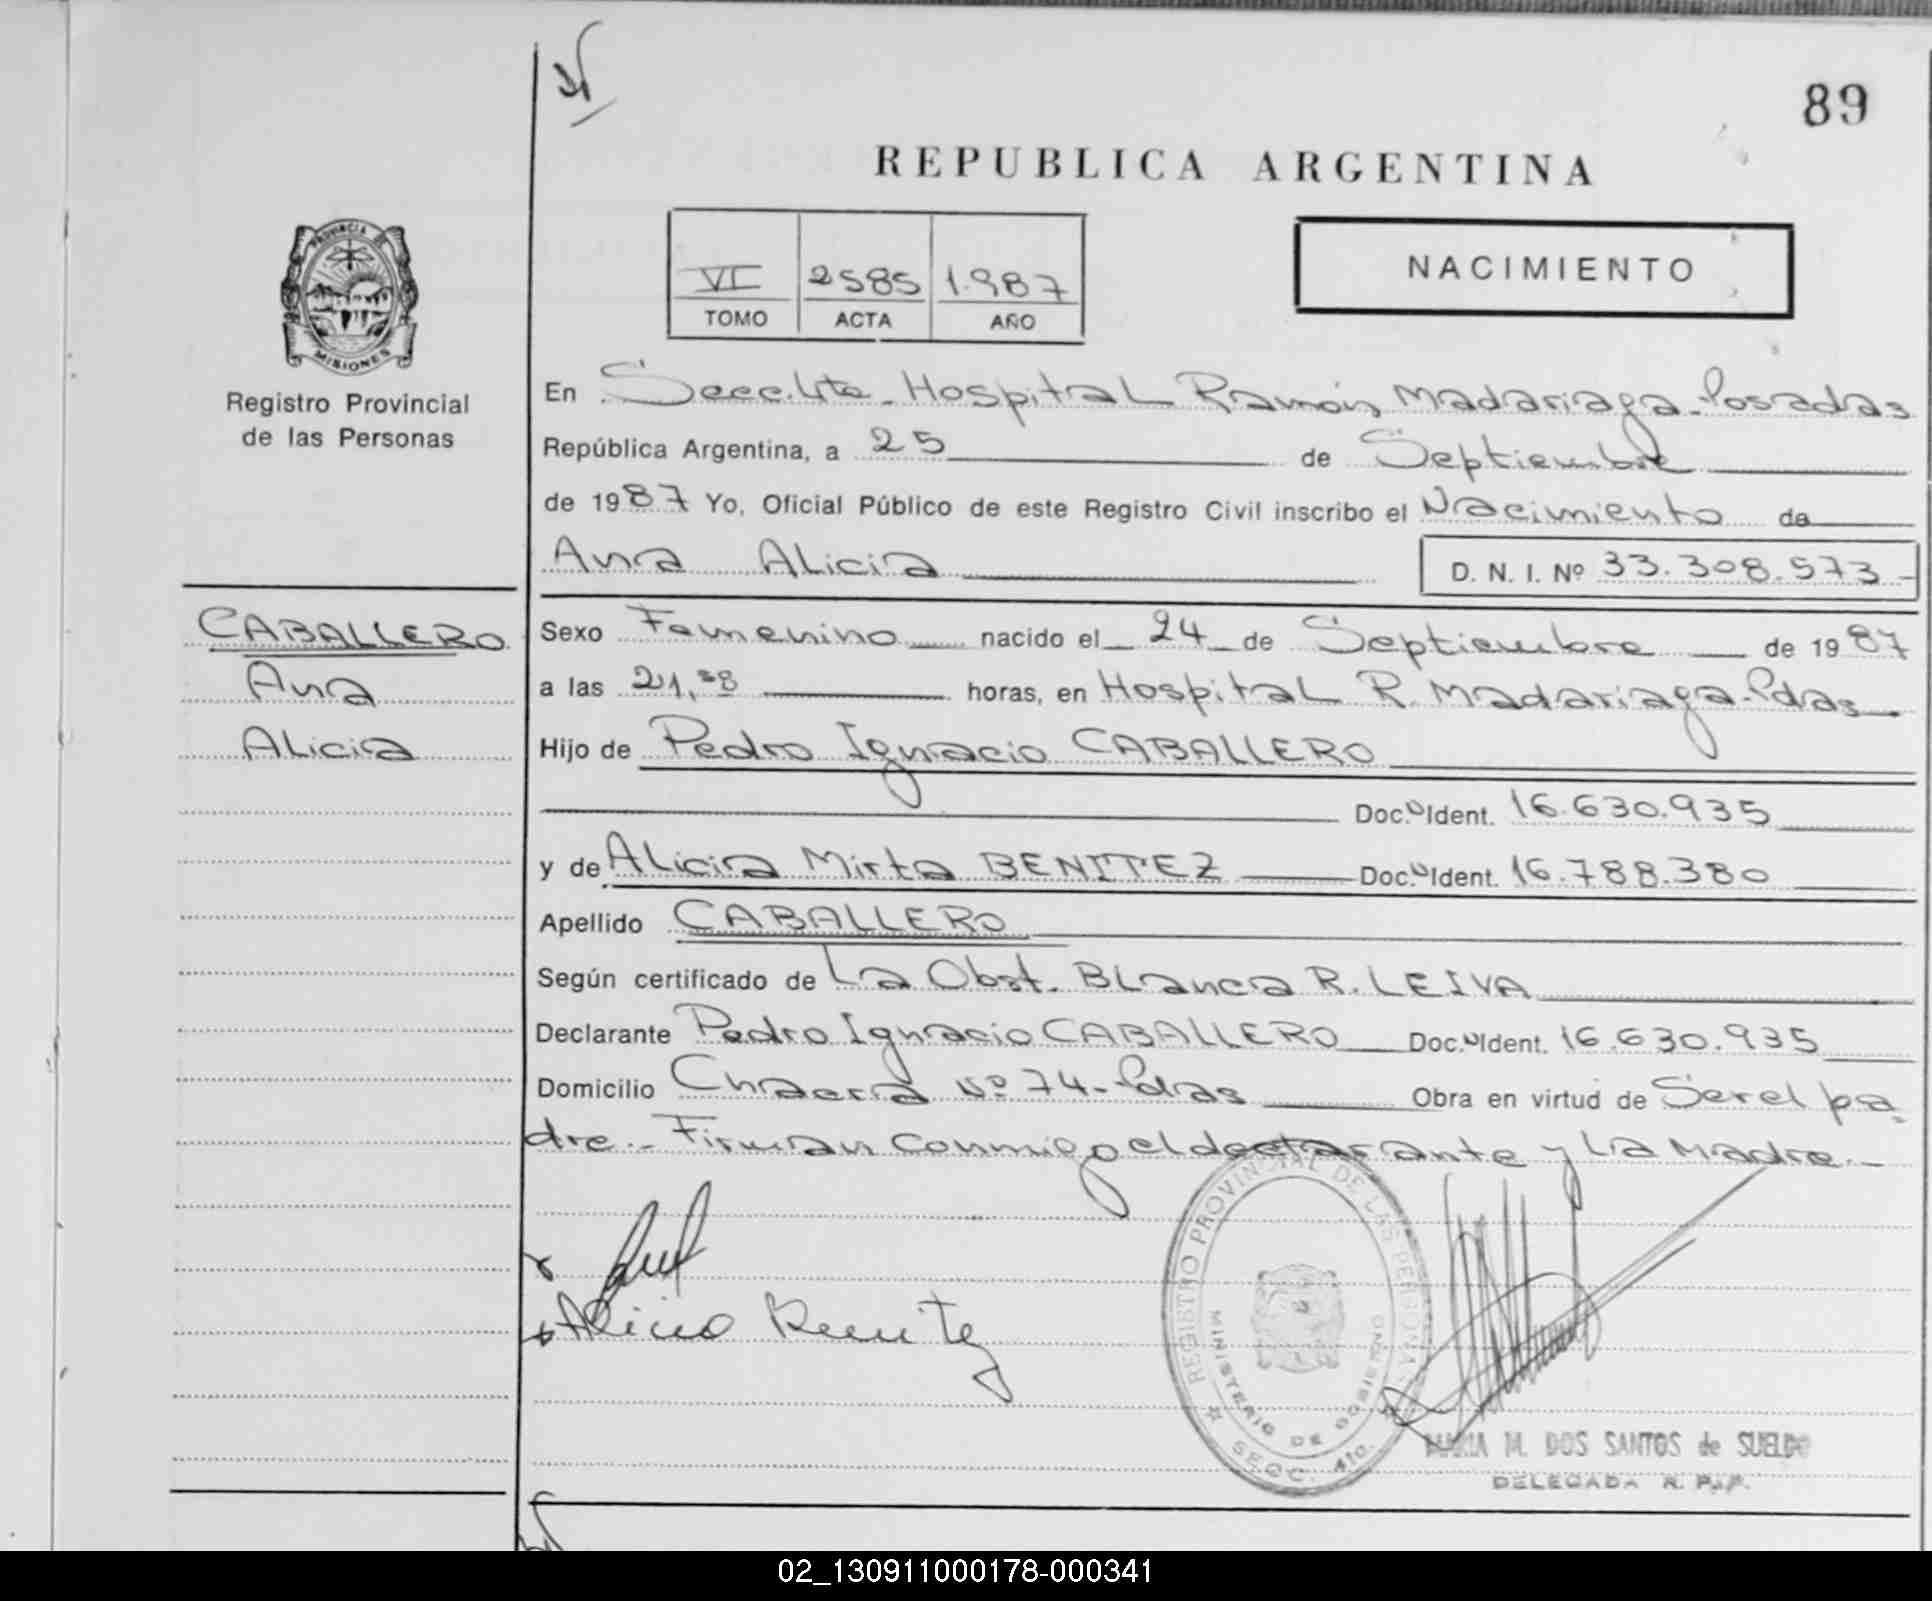 89
REPUBLICA ARGENTINA
PROVINCIA DE
MISIONES
Registro Provincial
de las Personas
VI 2585 1.987
TOMO ACTA AÑO
NACIMIENTO
En Secc. 4ta - Hospital Ramón Madariaga - Posadas
República Argentina, a 25 de Septiembre
de 1987 Yo, Oficial Público de este Registro Civil inscribo el Nacimiento de
Ana Alicia D. N. I. Nº 33.308.573-
CABALLERO
Ana
Alicia
Sexo Femenino nacido el 24 de Septiembre de 1987
a las 21,38 horas, en Hospital R. Madariaga - Pdas
Hijo de Pedro Ignacio CABALLERO
Doc. Ident. 16.630.935
y de Alicia Mirta BENITEZ Doc. Ident. 16.788.380
Apellido CABALLERO
Según certificado de La Obst. Blanca R. LEIVA
Declarante Pedro Ignacio CABALLERO Doc. Ident. 16.630.935
Domicilio Chacra Nº 74 - Pdas Obra en virtud de Ser el pa-
dre.- Firman conmigo el declarante y La Madre.-
Alicia Benitez
REGISTRO PROVINCIAL DE LAS PERSONAS
MINISTERIO DE GOBIERNO
SECC. 4to.
MARIA M. DOS SANTOS de SUELDO
DELEGADA R. P. P.
02_130911000178-000341